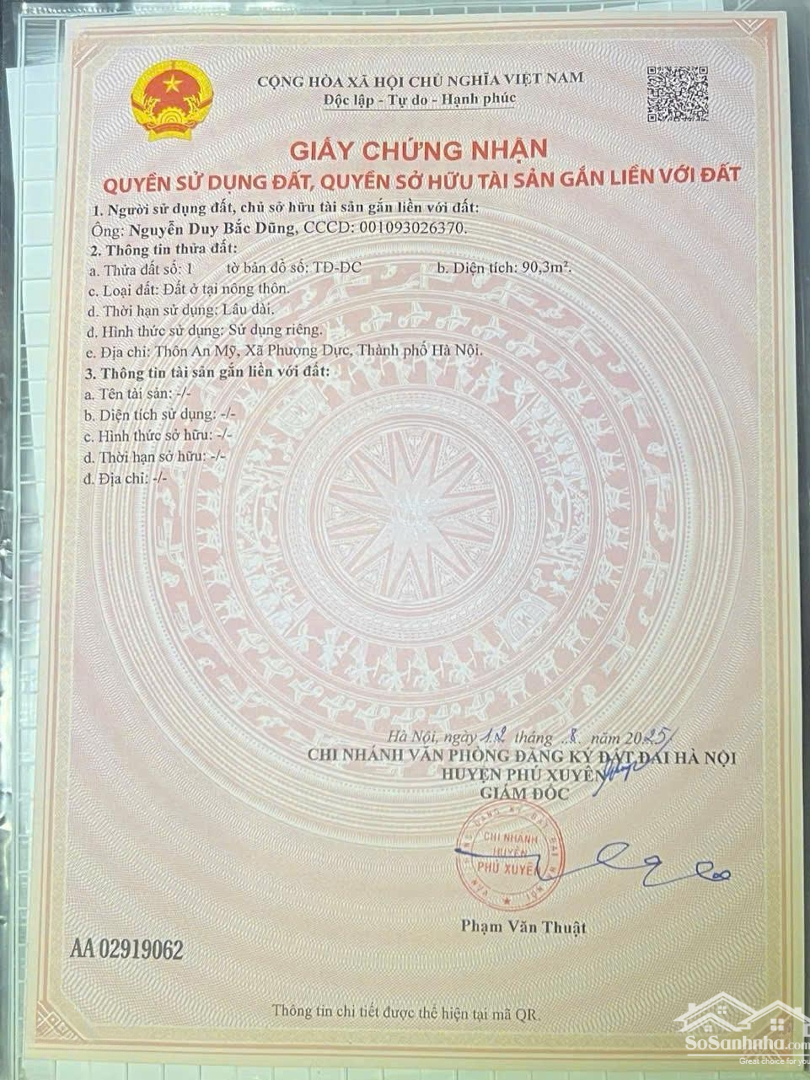 CỘNG HÒA XÃ HỘI CHỦ NGHĨA VIỆT NAM
Độc lập - Tự do - Hạnh phúc
GIẤY CHỨNG NHẬN
QUYỀN SỬ DỤNG ĐẤT, QUYỀN SỞ HỮU TÀI SẢN GẮN LIỀN VỚI ĐẤT
1. Người sử dụng đất, chủ sở hữu tài sản gắn liền với đất:
Ông: Nguyễn Duy Bắc Dũng, CCCD: 001093026370.
2. Thông tin thửa đất:
a. Thửa đất số: 1 tờ bản đồ số: TĐ-DC b. Diện tích: 90,3m².
c. Loại đất: Đất ở tại nông thôn.
d. Thời hạn sử dụng: Lâu dài.
đ. Hình thức sử dụng: Sử dụng riêng.
e. Địa chỉ: Thôn An Mỹ, Xã Phượng Dực, Thành phố Hà Nội.
3. Thông tin tài sản gắn liền với đất:
a. Tên tài sản: -/-
b. Diện tích sử dụng: -/-
c. Hình thức sở hữu: -/-
d. Thời hạn sở hữu: -/-
đ. Địa chỉ: -/-
Hà Nội, ngày 12 tháng 8 năm 2025
CHI NHÁNH VĂN PHÒNG ĐĂNG KÝ ĐẤT ĐAI HÀ NỘI
HUYỆN PHÚ XUYÊN
GIÁM ĐỐC
CHI NHÁNH
HUYỆN
PHÚ XUYÊN
Phạm Văn Thuật
AA 02919062
Thông tin chi tiết được thể hiện tại mã QR.
SoSanhnha.com
Great choice for you